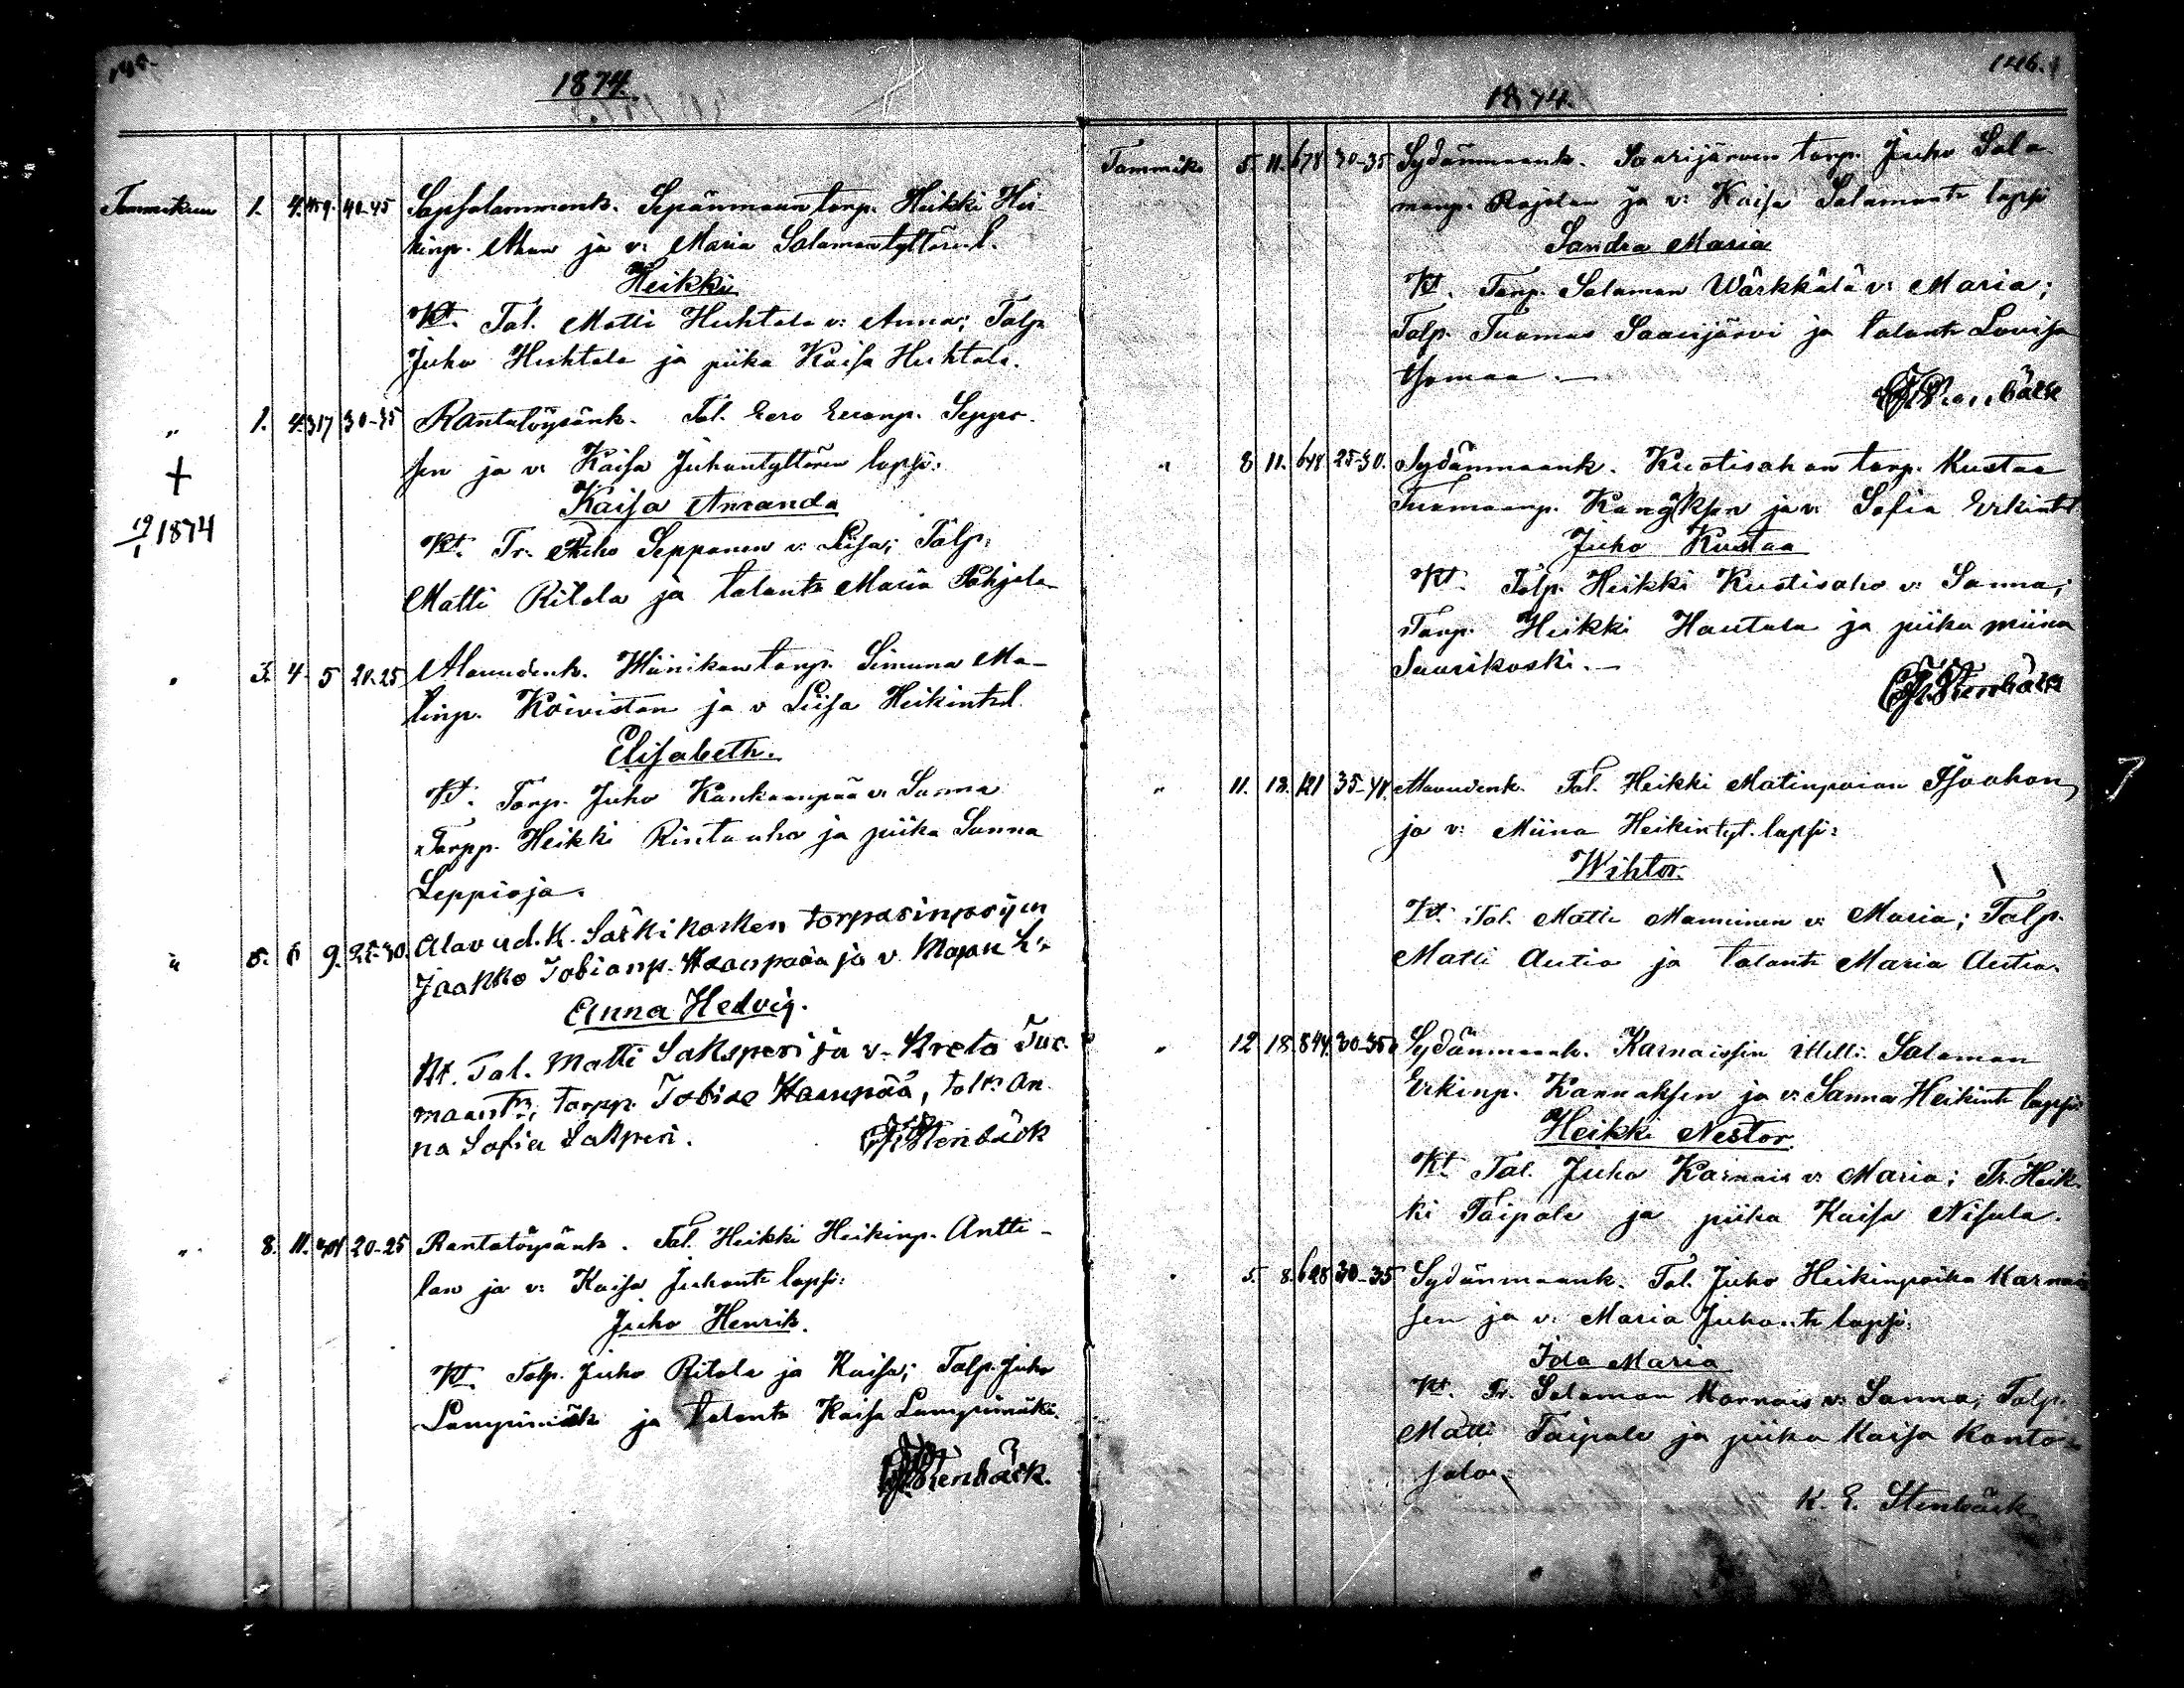 145.
1874.
Tammikuu 1. 4. 459. 40-45 Sapsalammenk. Sepänmaan torp. Heikki Hei-
kinp. Ahon ja v: Maria Salamontyttären l.
Heikki
Kt. Tal. Matti Huhtala v: Anna; Talp.
Juho Huhtala ja piika Kaisa Huhtala.
" 1. 4. 317 30-35 Rantatöysänk. Tal. Eero Eeronp. Seppo-
sen ja v: Kaisa Juhontyttären lapsi:
+
Kaisa Amanda
19/1 1874
Kt. Tr. Juho Sepponen v: Liisa; Talp.
Matti Ritola ja talontr Maria Pohjola
" 3. 4. 5 20-25 Alavudenk. Niinikon torp. Simuna Ma-
tinp. Koiviston ja v Liisa Heikintrl.
Elisabeth.
Kt. Torp. Juho Kankaanpää v: Sanna
Torpp. Heikki Rintaaho ja piika Sanna
Leppioja.
" 5. 6 9. 25-30. Alavud.k. Särkikosken torparinpojan
Jaakko Tobianp. Haanpään ja v. Majan l:
Anna Hedvig.
Kt. Tal. Matti Saksperi ja v. Kreta Tuo-
maantr, torpp. Tobias Haanpää, taltr. An-
na Sofia Saksperi. Stenbäck
" 8. 11. 20-25 Rantatöysänk. Tal. Heikki Heikinp. Antti-
lan ja v: Kaisa Juhontr lapsi:
Juho Henrik.
Kt. Talp. Juho Ritola ja Kaisa; Talp. Juho
Lampimäki ja talontr Kaisa Lampimäki.
Stenbäck.
146.
1874.
Tammik. 5. 11. 678 30-35 Sydänmaank. Saarijärven torp. Juho Sala-
monp. Rajalan ja v: Kaisa Salamontr lapsi
Sandra Maria
Kt. Torp. Salamon Wärkkälä v: Maria;
Talp. Tuomas Saarijärvi ja talontr Lovisa
Ihamaa.
Stenbäck
" 8 11. 648 25-30. Sydänmaank. Kuotisahon torp. Kustaa
Tuomaanp. Kangaksen ja v: Sofia Erkintr l
Juho Kustaa
Kt. Talp. Heikki Kuotisaho v: Sanna;
Torp. Heikki Hautala ja piika Miina
Suurikoski.
Stenbäck
" 11. 13. 121 35-40. Alavudenk. Tal. Heikki Matinpoian Isoahon
ja v: Miina Heikintyt. lapsi:
Wihtor.
Kt. Tal. Matti Manninen v: Maria; Talp.
Matti Autio ja talontr Maria Autio.
" 12 18. 844. 30-35 Sydänmaank. Karnaissin itselli. Salamon
Erkinp. Kannaksen ja v: Sanna Heikintr lapsi
Heikki Nestor
Kt. Tal. Juho Karnais v: Maria; Tr. Heik-
ki Taipale ja piika Kaisa Nisula.
" 5. 8. 628 30-35 Sydänmaank. Tal. Juho Heikinpoika Karnais
sen ja v: Maria Juhontr lapsi:
Ida Maria
Kt. Tr. Salamon Karnais v: Sanna; Talp.
Matti Taipale ja piika Kaisa Kanto-
salo.
K. E. Stenbäck